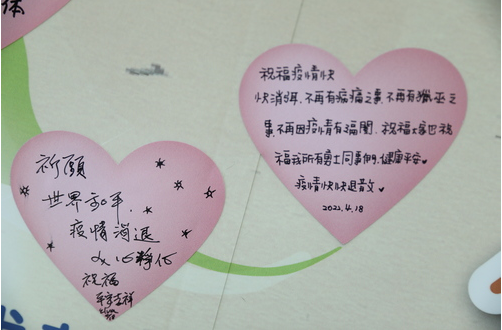 体
祝福疫情快
快消弭.不再有病痛之事.不再有獵巫之
事.不再因疫情有 祝福大家也祝
福我所有勇士同事們.健康平安♥
疫情快快退散♥
2022.4.18
祈願
世界和平.
疫情消退
人心淨化
祝福
平安吉祥